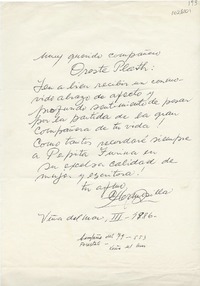 Muy querido compañero
Oreste Plath:
Ten a bien recibir un conmo-
vido abrazo de afecto y
profundo sentimiento de pesar
por la partida de la gran
Compañera de tu vida.
Como tantos recordaré siempre
a Pepita Turina en
su excelsa calidad de
mujer y escritora!
tu amigo,
Viña del Mar, III - 1986.